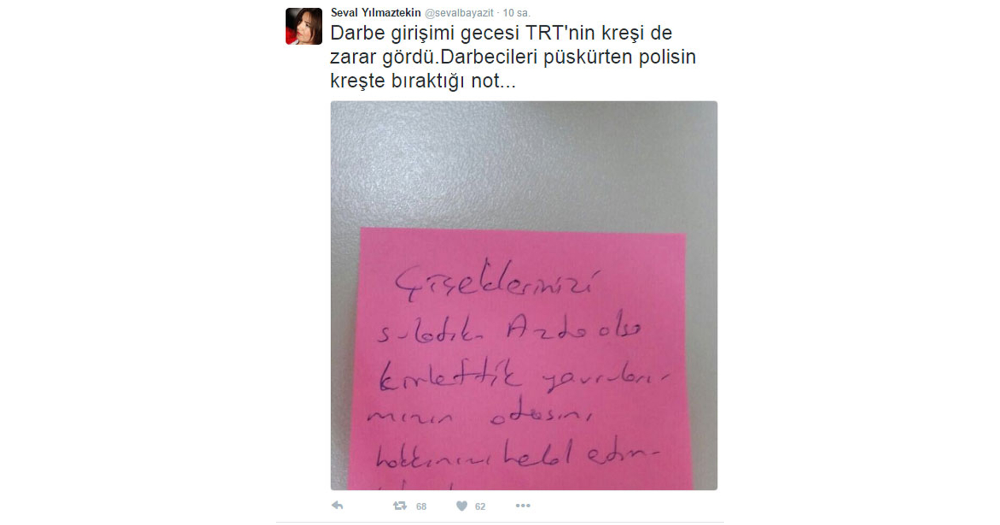 Seval Yılmaztekin @sevalbayazit · 10 sa.
Darbe girişimi gecesi TRT'nin kreşi de
zarar gördü.Darbecileri püskürten polisin
kreşte bıraktığı not...
Çiçeklerinizi
suladık. Azda olsa
kirlettik yavruları-
mızın odasını
hakkınızı helal edin-
68 62